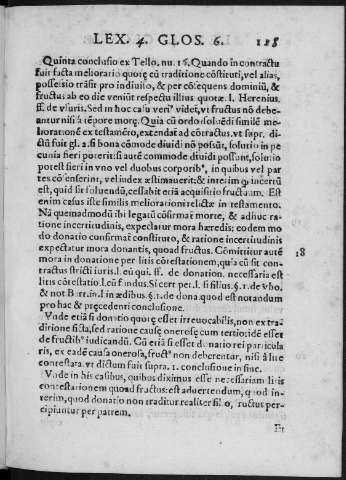 LEX. 4. GLOS. 6. 188
Quinta conclusio ex Tello. nu. 16. Quando in contractu
fuit facta melioratio quotę cū traditione cōstituti, vel alias,
possessio trāsit pro indiuiso, & per cōsequens dominiū, &
fructus ab eo die veniūt respectu illius quotæ. l. Herenius.
ff. de vsuris. Sed in hoc casu veri⁹ videt, vt fructus nō debe-
antur nisi à tēpore morę. Quia cū ordo soluēdi similē me-
liorationē ex testamēto, extendat ad cōtractus. vt supr. di-
ctū fuit gl. 2. si bona cōmode diuidi nō possūt, solutio in pe-
cunia fieri poterit: si autē commode diuidi possunt, solutio
potest fieri in vno vel duobus corporib⁹, in quibus vel par-
tes cōsenserint, vel iudex æstimauerit: & interim q; incertū
est, quid sit soluendū, cessabit etiā acquisitio fructuum. Est
enim casus iste similis meliorationi relictæ in testamento.
Nā quemadmodū ibi legatū cōfirmat morte, & adhuc ra-
tione incertitudinis, expectatur mora hæredis: eodem mo
do donatio confirmat constituto, & ratione incertitudinis
expectatur mora donantis, quoad fructus. Cōmittitur autē 18
mora in donatione per litis cōtestationem, quia cū sit con-
tractus stricti iuris. l. eū qui. ff. de donation. necessaria est
litis cōtestatio. l. cū fundus. Si cert. pet. l. si filius. §. 1. de vho.
& not Bart. in l. in ædibus. §. 1. de dona. quod est notandum
pro hac & precedenti conclusione.
Vnde etiā si donatio quotę esset irreuocabilis, non ex tra-
ditione ficta, sed ratione causę onerosę cum tertio: idē esset
de fructib⁹ iudicandū. Cū etiā si esset donatio rei particula
ris, ex eadē causa onerosa, fruct⁹ non deberentur, nisi à lite
contestata. vt dictum fuit supra. 1. conclusione in fine.
Vnde in his casibus, quibus diximus esse necessariam litis
contestationem quoad fructus: est aduertendum, quod in-
terim, quod donatio non traditur realiter filio, fructus per-
cipiuntur per patrem.
Et